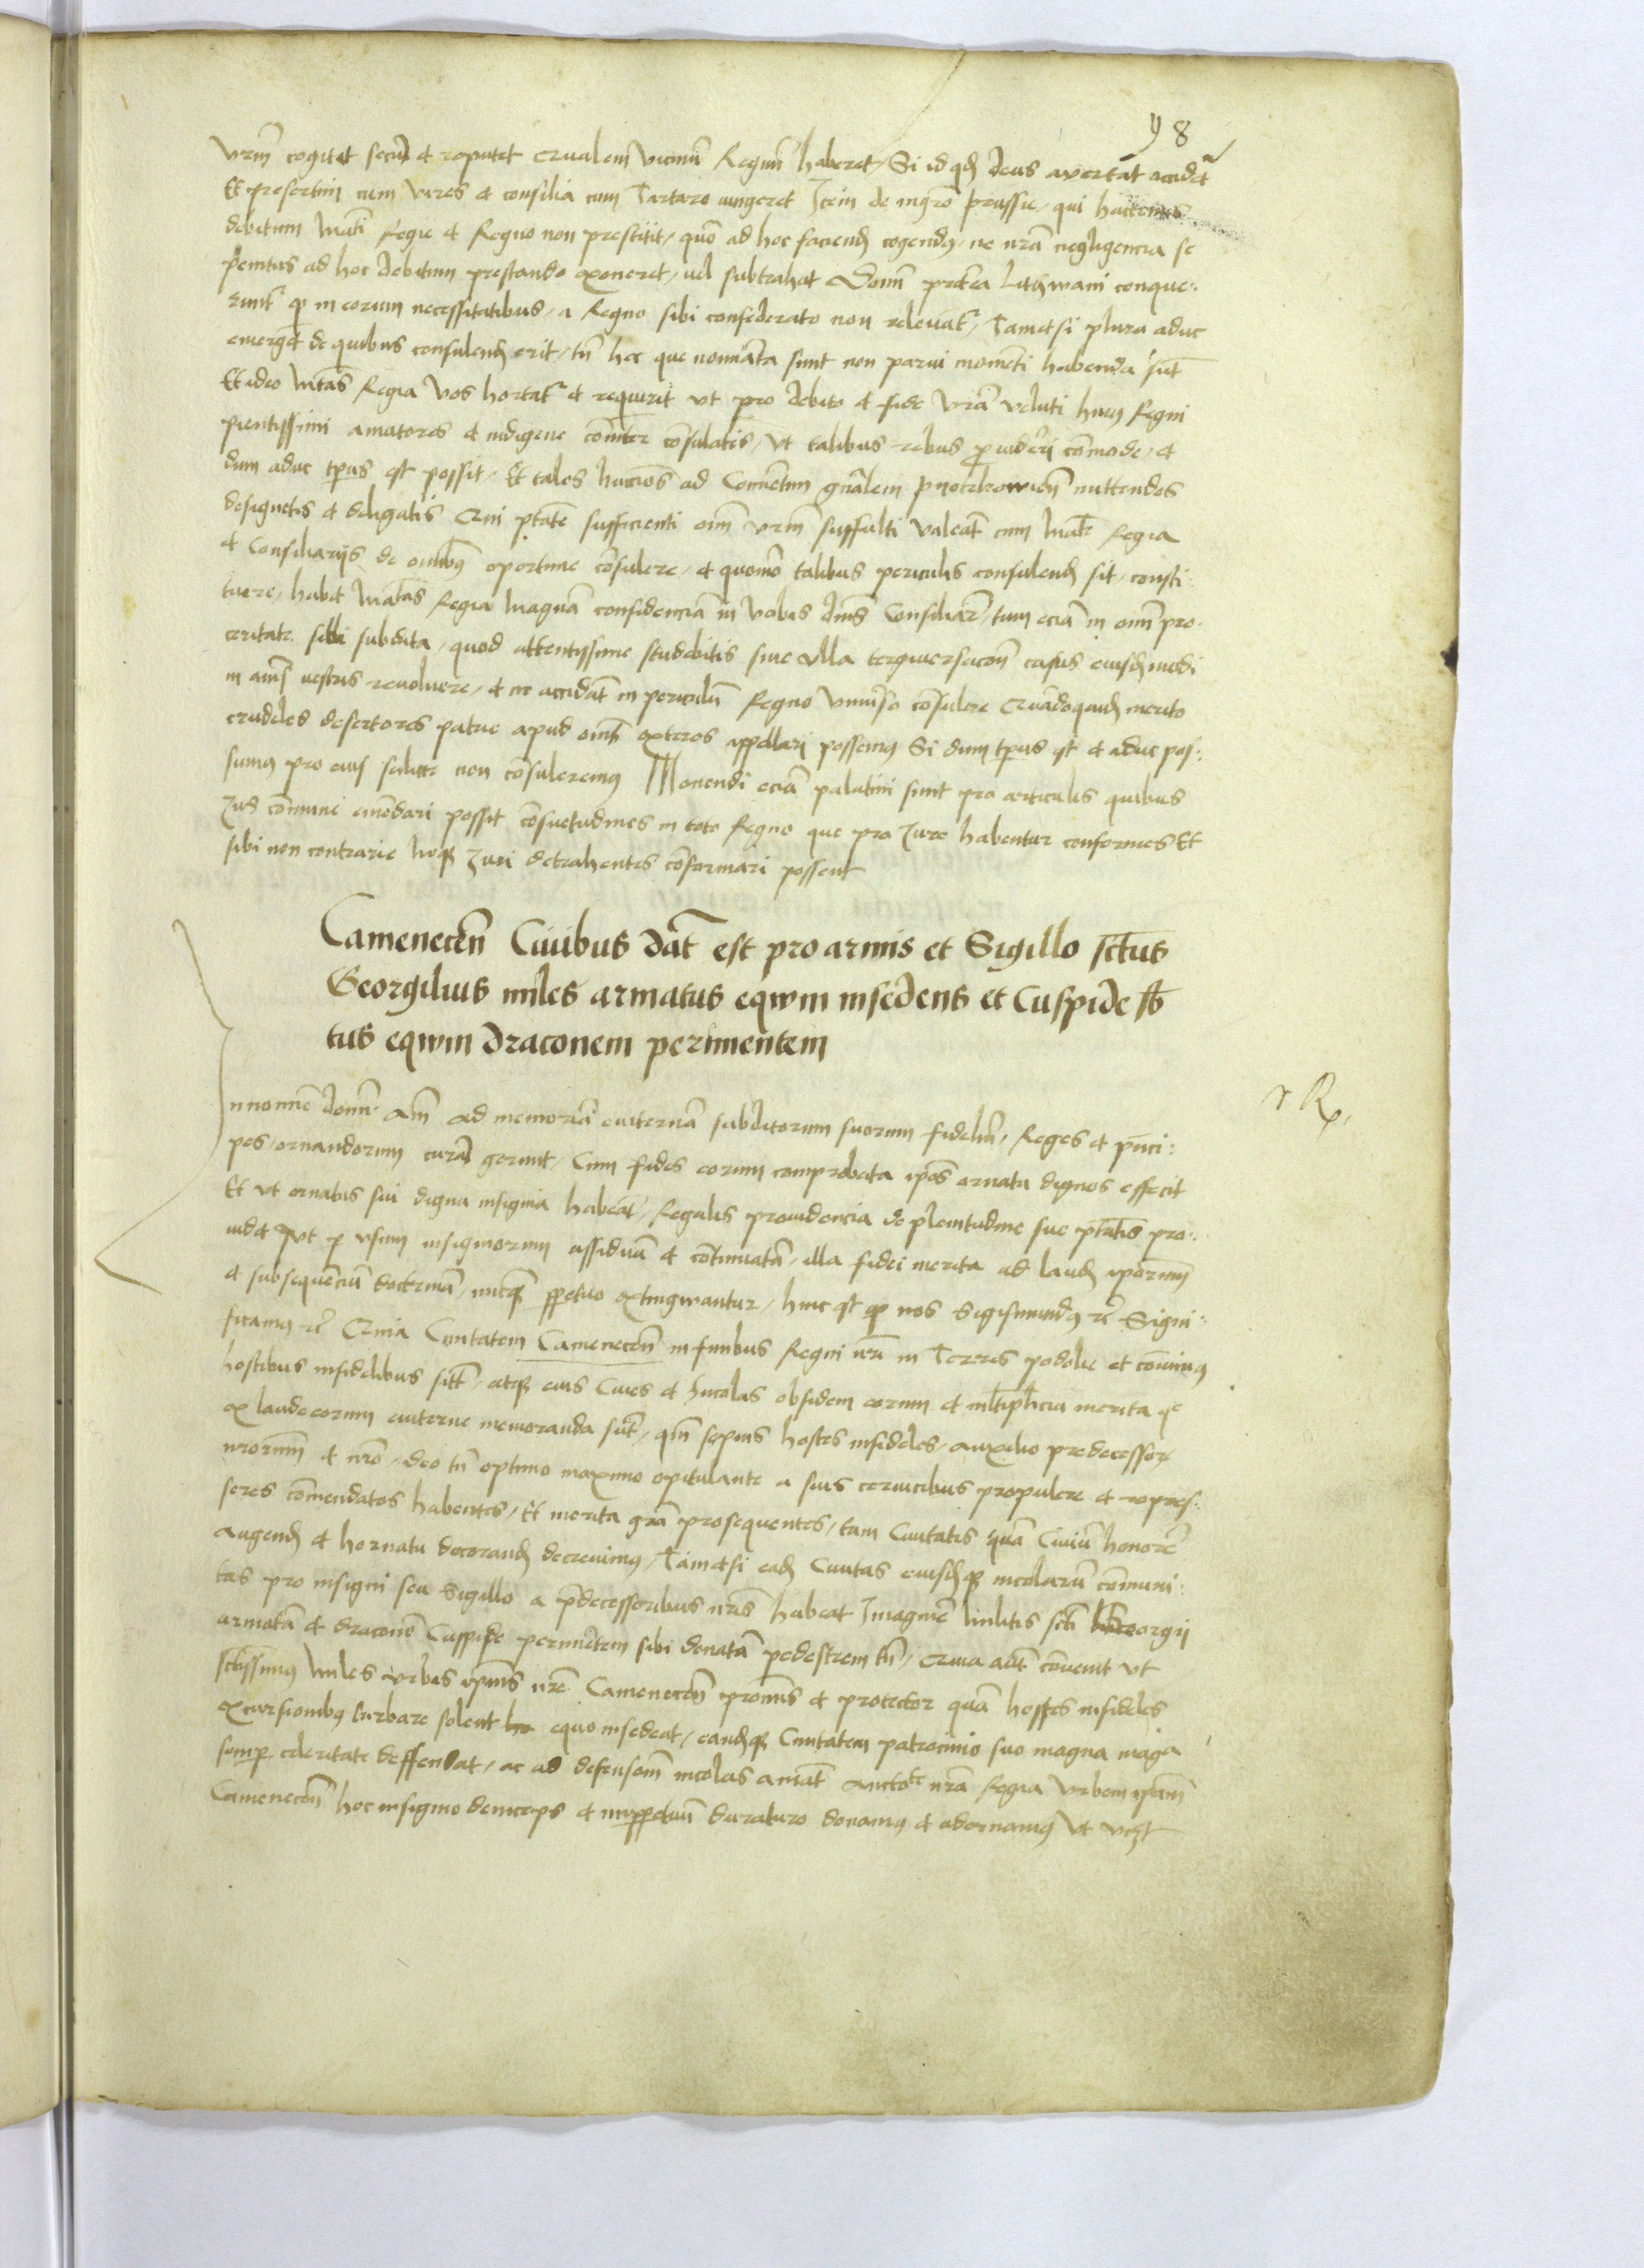 98
vrm̃ cogitet secũ et reputet Qualem vicinũ Regnũ haberet / Si id qđ deus avertat accidet̃
Et presertim cum vires et consilia cum Tartaro iungeret Item de mgr̃o prussie / qui hactenus
debitum Mati Regie et Regno non prestitit / quõ ad hoc faciend̃ cogendus / ne nrã negligencia se
penitus ad hoc debitum prestando exoneret / vel subtrahat Domi pretea Lithwani conque:
runt̃ qp in eorum necessitatibus / a Regno sibi confederato non relevat̃ / Tametsi plura aduc
emerget de quibus consulend̃ erit / tñ hec que nomiata sunt non parui momẽti habenda sũt
Et ideo Mtas Regia Vos hortat̃ et requirit vt pro debito et fide vrã veluti huius Regni
pientissimi amatores et indigene com̃iter cõsulatis / vt talibus rebus prouideri cõmode / et
dum aduc tp̃us est possit / Et tales Nuncios ad Conuẽtum gñalem pyotrkowieñ mittendos
designetis et deligatis Qui ptate sufficienti oim̃ vrm̃ suffulti Valeãt cum Mate Regia
et Consiliarijs de om̃ibus oportune cõsulere / et quomõ talibus periculis consulend̃ sit / consti:
tuere / habet Matas Regia Magnã confidenciã in Vobis dñis Consiliar̃ / tum eciã in om̃i pro-
ceritate sibi subdita / quod attentissime studebitis sine vlla tergiuersacõe casus eiusd̃modi
in aĩs vestris reuoluere / et ne accidãt in periculũ Regno vniuerso cõsulere Quãdoquid̃ merito
crudeles desertores patrie apud oim̃s exteros appellari possemus Si dum tp̃us est et aduc pos:
sumus pro eius salute non cõsuleremus Monendi eciã palatini sunt pro articulis quibus
Jus cõmune emẽdari possit cõsuetudines in toto Regno que pro Jure habentur conformes Et
sibi non contrarie neqz Juri detrahentes cõformari possent
Cameneceñ Ciuibus dat̃ est pro armis et Sigillo sctus
Georgilius miles armatus eqwm insedens et Cuspide sb
tus eqwm draconem perimentem
R
In nomĩe domĩ Am̃ Ad memoriã euiternã subditorum suorum fideliũ / Reges et prĩci:
pes / ornandorum curã gerunt / Cum fides eorum comprobata ip̃os ornatu dignos effecit
Et vt ornatus sui digna insignia habeãt / Regalis prouidencia de plenitudine sue ptatis pro:
uidet Vt p vsum insigniorum assiduũ et cõtinuatũ / illa fidei merita ad laud̃ ip̃orum
et subsequẽciũ doctrinã / nucqz perpetuo extingwantur / hinc est qp nos Sigismundus etc̃ Signi:
ficamus etc̃ Quia Ciuitatem Cameneceñ in finibus Regni nr̃i in Terris podolie et cõuicinis
hostibus infidelibus sitã / atqz eius Ciues et Incolas obsidem eorum et mltiplicia merita que
ex laude eorum euiterne memoranda sũt / qm̃ sepius hostes infideles / auxilio predecessor
nrorum et nrõ / deo tñ optimo maximo opitulante a suis ceruicibus propulere et repres:
seres cõmendatos habentes / Et merita grã prosequentes / tam Ciuitatis quã Ciuiũ honorẽ
augend̃ et hornatu decorand̃ decreuimus / Tametsi ead̃ Ciuitas eiusd̃qz incolarũ cõmuni:
tas pro insigni seu Sigillo a p̃decessoribus nris habeat Imaginẽ Militis scti Georgij
armatã et draconẽ Cuspide perimẽtem sibi donatã pedestrem tñ / Quia aũt cõuenit vt
sctissimus Miles vrbis ip̃ius nrẽ Cameneceñ pronus et protector quã hostes infideles
excursionibus turbare solent equo insedeat / eand̃qz Ciuitatem patrocinio suo magna magis
semp celeritate deffendat / ac ad defensiom̃ incolas aniãt Auctote nrã Regia vrbem ip̃am
Cameneceñ hoc insigne deinceps et imperpetuũ duraturo donamus et adornamus Vt vtz